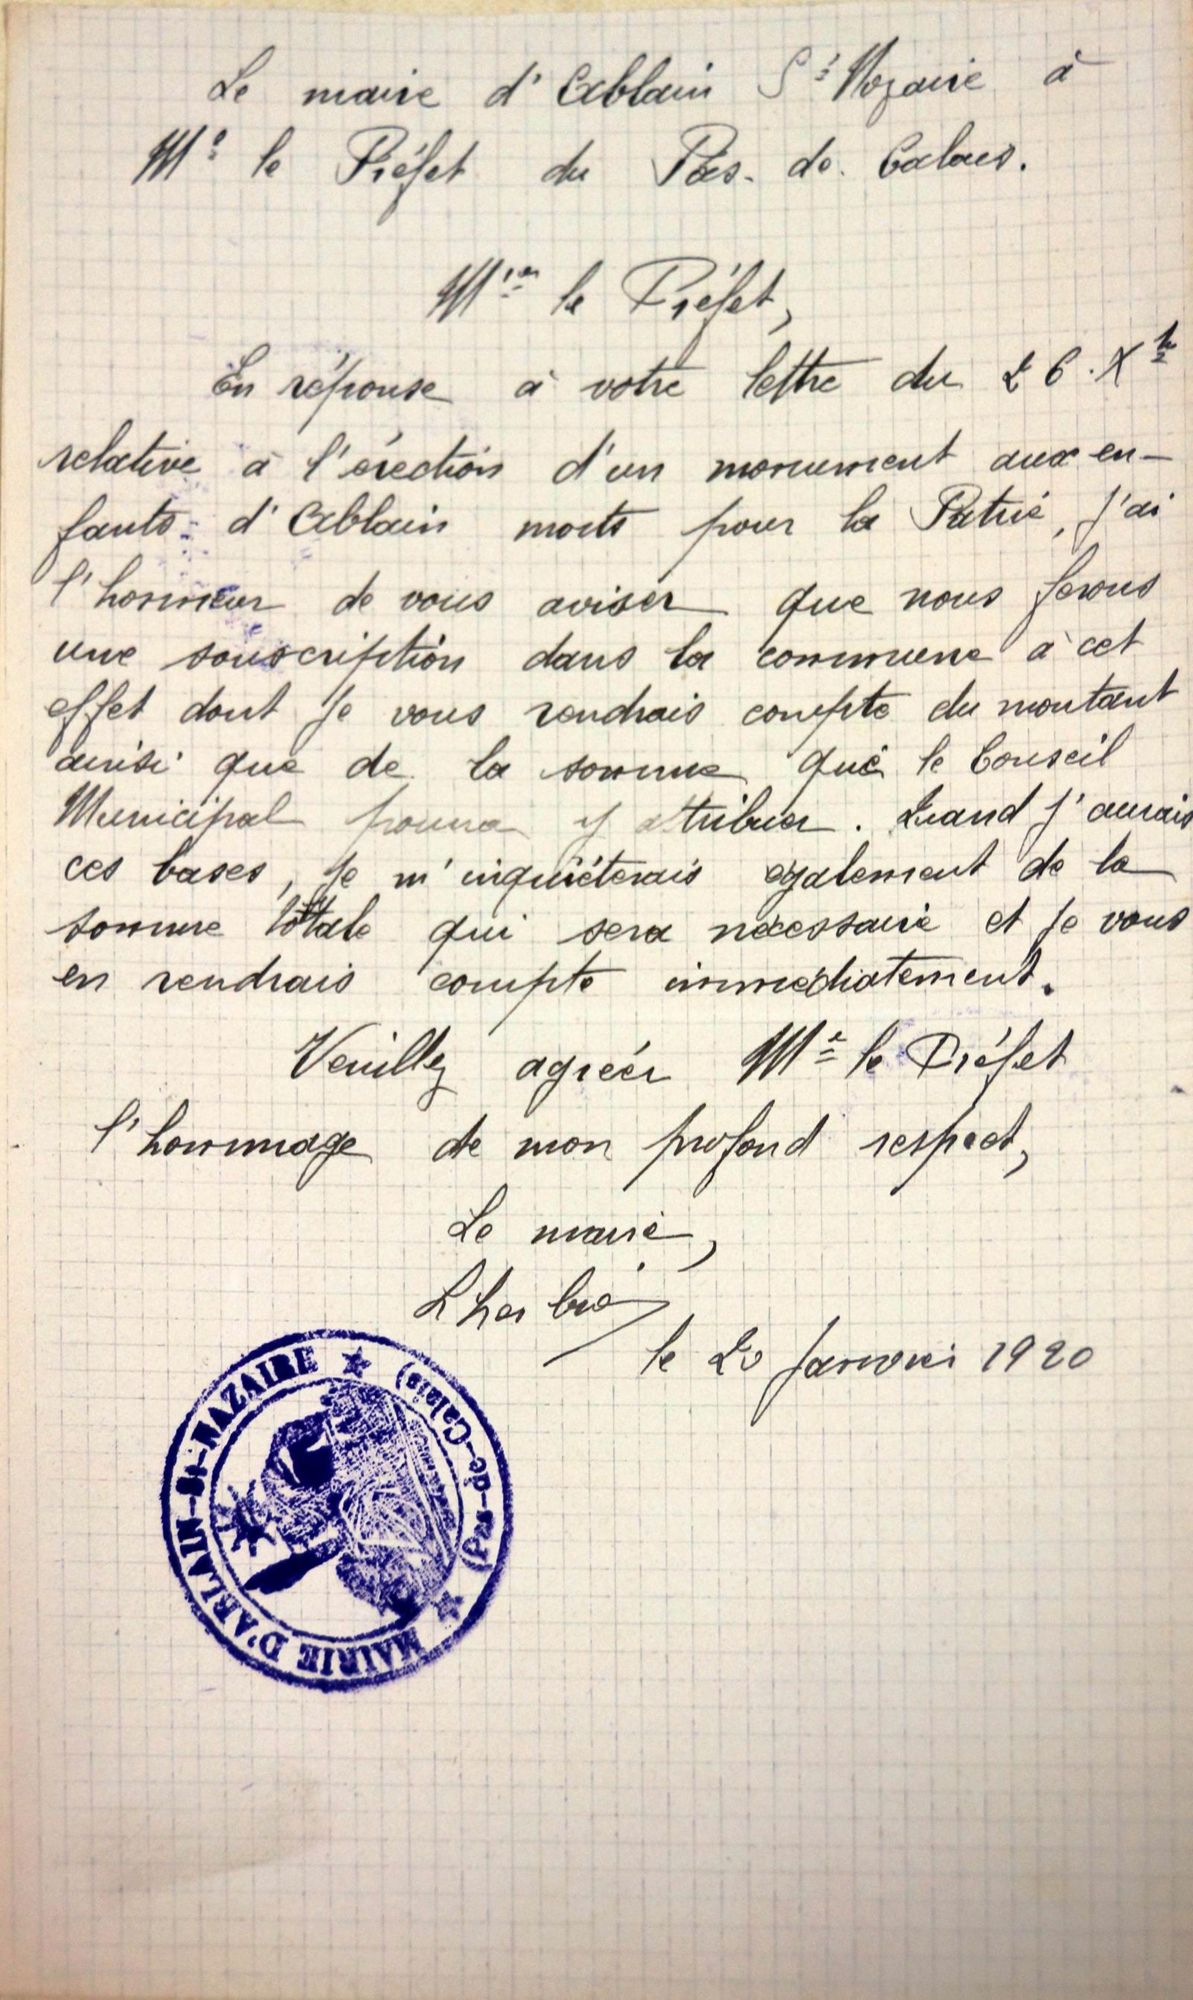 Le maire d'Ablain St Nazaire à
Mr le Préfet du Pas-de-Calais.
Mr le Préfet,
En réponse à votre lettre du 26 Xbre
relative à l'érection d'un monument aux en-
fants d'Ablain morts pour la Patrie, j'ai
l'honneur de vous aviser que nous ferons
une souscription dans la commune à cet
effet dont je vous rendrais compte du montant
ainsi que de la somme que le Conseil
Municipal pourra y attribuer. Quand j'aurais
ces bases, je m'inquièterais également de la
somme totale qui sera nécessaire et je vous
en rendrais compte immédiatement.
Veuillez agréer Mr le Préfet
l'hommage de mon profond respect,
Le maire,
le 20 Janvier 1920
MAIRIE D'ABLAIN-St-NAZAIRE ★ (Pas-de-Calais) ★